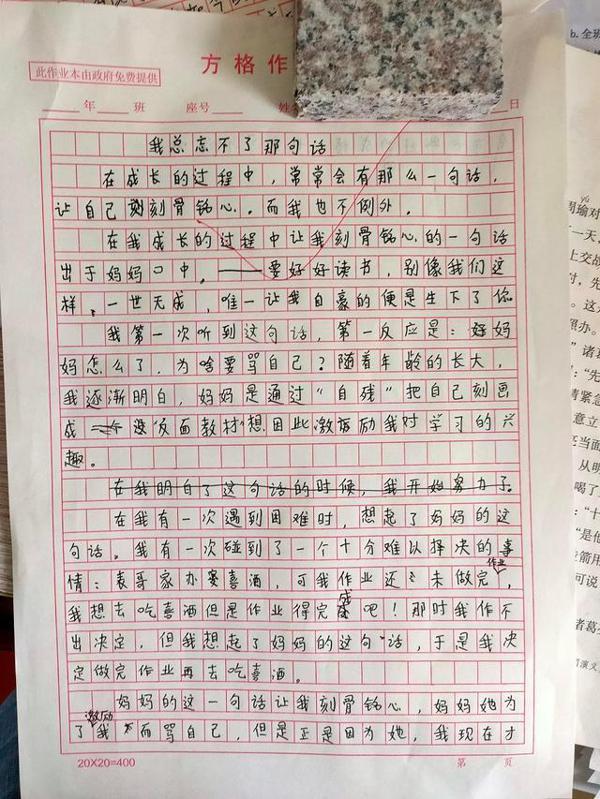 此作业本由政府免费提供
方格作
年 班 座号 日
我总忘不了那句话
在成长的过程中，常常会有那么一句话，
让自己刻刻骨铭心。而我也不例外。
在我成长的过程中让我刻骨铭心的一句话
出于妈妈口中。——要好好读书，别像我们这
样，一世无成，唯一让我自豪的便是生下了你
我第一次听到这句话，第一反应是：好妈
妈怎么了，为啥要骂自己？随着年龄的长大，
我逐渐明白，妈妈是通过“自残”把自己刻画
成一个反面教材想因此激励我对学习的兴
趣。
在我明白了这句话的时候，我开始努力了。
在我有一次遇到困难时，想起了妈妈的这
句话。我有一次碰到了一个十分难以择决的事
情：表哥家办宴喜酒，可我作业还未做完，
作业
我想去吃喜酒但是作业得完成吧！那时我作不
出决定，但我想起了妈妈的这句话，于是我决
定做完作业再去吃喜酒。
妈妈的这一句话让我刻骨铭心，妈妈她为
激励
了我而骂自己，但是正是因为她，我现在才
20X20=400
第 页
b.全班
周瑜对
一天，
上交战
对，先
这
照办。
诸葛
：“先
情紧急
意立
当面
从明
喝了
：“十
“是他
箭用
可说
诸葛
演义